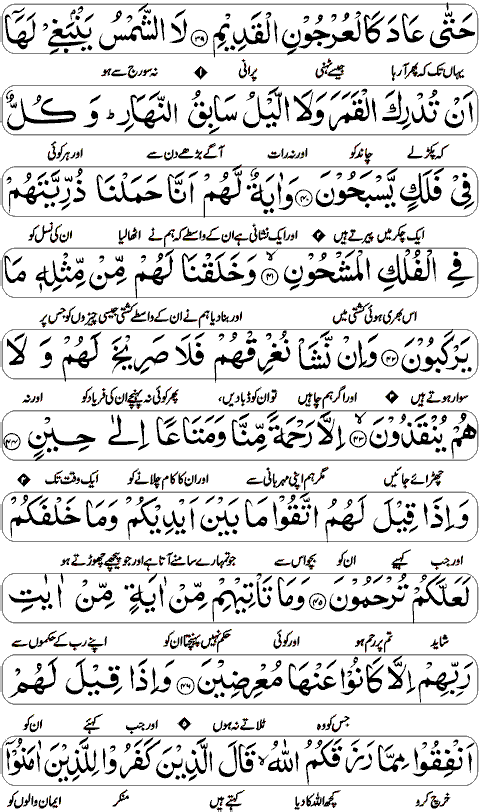 حَتّٰى عَادَ كَالْعُرْجُوْنِ الْقَدِيْمِ ﴿۳۹﴾ لَا الشَّمْسُ يَنْۢبَغِيْ لَهَاۤ
یہاں تک کہ پھر آ رہا جیسے ٹہنی پرانی ۱ نہ سورج سے ہو
اَنْ تُدْرِكَ الْقَمَرَ وَلَا الَّيْلُ سَابِقُ النَّهَارِ ؕ وَ كُلٌّ
کہ پکڑ لے چاند کو اور نہ رات آگے بڑھے دن سے اور ہر کوئی
فِيْ فَلَكٍ يَّسْبَحُوْنَ ﴿۴۰﴾ وَاٰيَةٌ لَّهُمْ اَنَّا حَمَلْنَا ذُرِّيَّتَهُمْ
ایک چکر میں پیرتے ہیں ۲ اور ایک نشانی ہے ان کے واسطے کہ ہم نے اٹھا لیا ان کی نسل کو
فِي الْفُلْكِ الْمَشْحُوْنِ ﴿۴۱﴾ وَخَلَقْنَا لَهُمْ مِّنْ مِّثْلِهٖ مَا
اس بھری ہوئی کشتی میں اور بنا دیا ہم نے ان کے واسطے کشتی جیسی چیزوں کو جس پر
يَرْكَبُوْنَ ﴿۴۲﴾ وَاِنْ نَّشَاْ نُغْرِقْهُمْ فَلَا صَرِيْخَ لَهُمْ وَ لَا
سوار ہوتے ہیں اور اگر ہم چاہیں تو ان کو ڈبا دیں، پھر کوئی نہ پہنچے ان کی فریاد کو اور نہ
هُمْ يُنْقَذُوْنَ ﴿۴۳﴾ اِلَّا رَحْمَةً مِّنَّا وَمَتَاعًا اِلٰى حِيْنٍ ﴿۴۴﴾
چھڑائے جائیں مگر ہم اپنی مہربانی سے اور ان کا کام چلانے کو ایک وقت تک
وَاِذَا قِيْلَ لَهُمُ اتَّقُوْا مَا بَيْنَ اَيْدِيْكُمْ وَمَا خَلْفَكُمْ
اور جب کہیے ان کو بچو اس سے جو تمہارے سامنے آتا ہے اور جو پیچھے چھوڑتے ہو
لَعَلَّكُمْ تُرْحَمُوْنَ ﴿۴۵﴾ وَمَا تَاْتِيْهِمْ مِّنْ اٰيَةٍ مِّنْ اٰيٰتِ
شاید تم پر رحم ہو اور کوئی حکم نہیں پہنچتا ان کو اپنے رب کے حکموں سے
رَبِّهِمْ اِلَّا كَانُوْا عَنْهَا مُعْرِضِيْنَ ﴿۴۶﴾ وَاِذَا قِيْلَ لَهُمْ
جس کو وہ ٹلاتے نہ ہوں اور جب کہئے ان کو
اَنْفِقُوْا مِمَّا رَزَقَكُمُ اللّٰهُ ۙ قَالَ الَّذِيْنَ كَفَرُوْا لِلَّذِيْنَ اٰمَنُوْۤا
خرچ کرو کچھ اللہ کا دیا کہتے ہیں منکر ایمان والوں کو